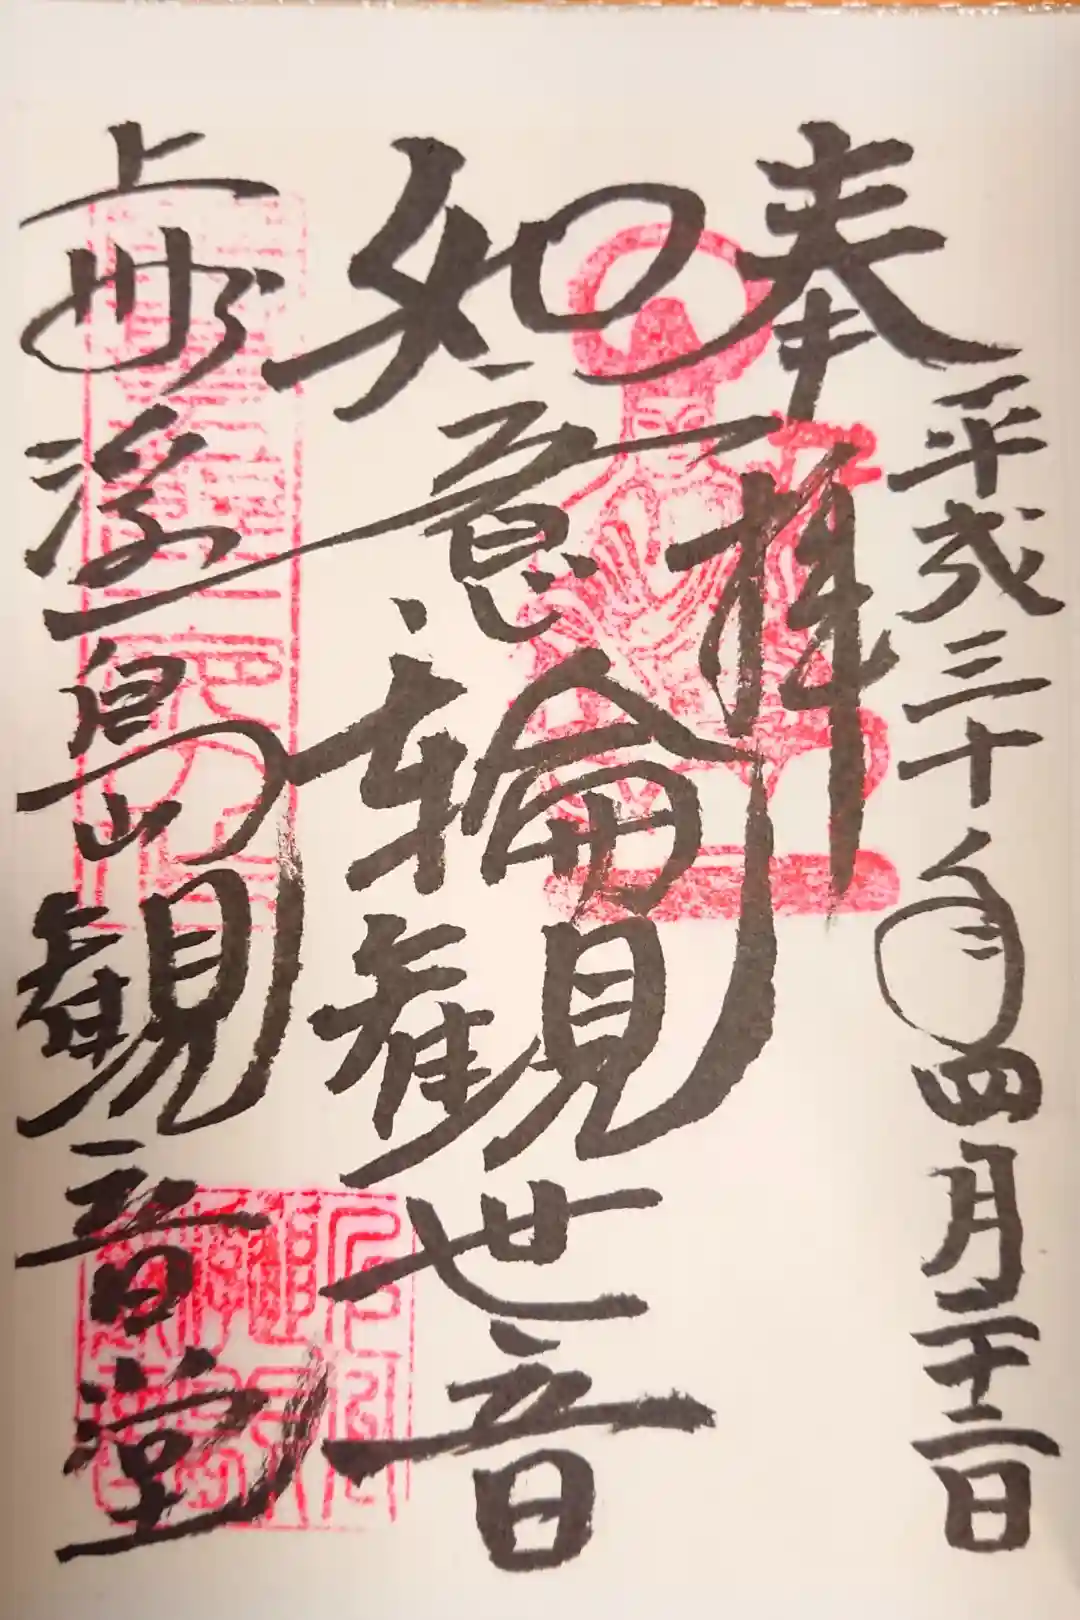 奉拝
平成三十年四月二十二日
如意輪観世音
上州浮島観音堂